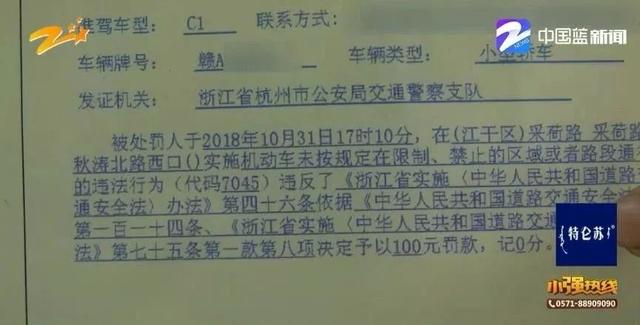 准驾车型: C1 联系方式:
中国蓝新闻
车辆牌号: 赣A 车辆类型: 小型轿车
发证机关: 浙江省杭州市公安局交通警察支队
被处罚人于2018年10月31日17时10分,在(江干区)采荷路 采荷路
秋涛北路西口()实施机动车未按规定在限制、禁止的区域或者路段通
的违法行为(代码7045)违反了《浙江省实施〈中华人民共和国道路
通安全法〉办法》第四十六条依据《中华人民共和国道路交通安全法
第一百一十四条、《浙江省实施〈中华人民共和国道路交通
法》第七十五条第一款第八项决定予以100元罚款,记0分。
特仑苏
小强热线
0571-88909090